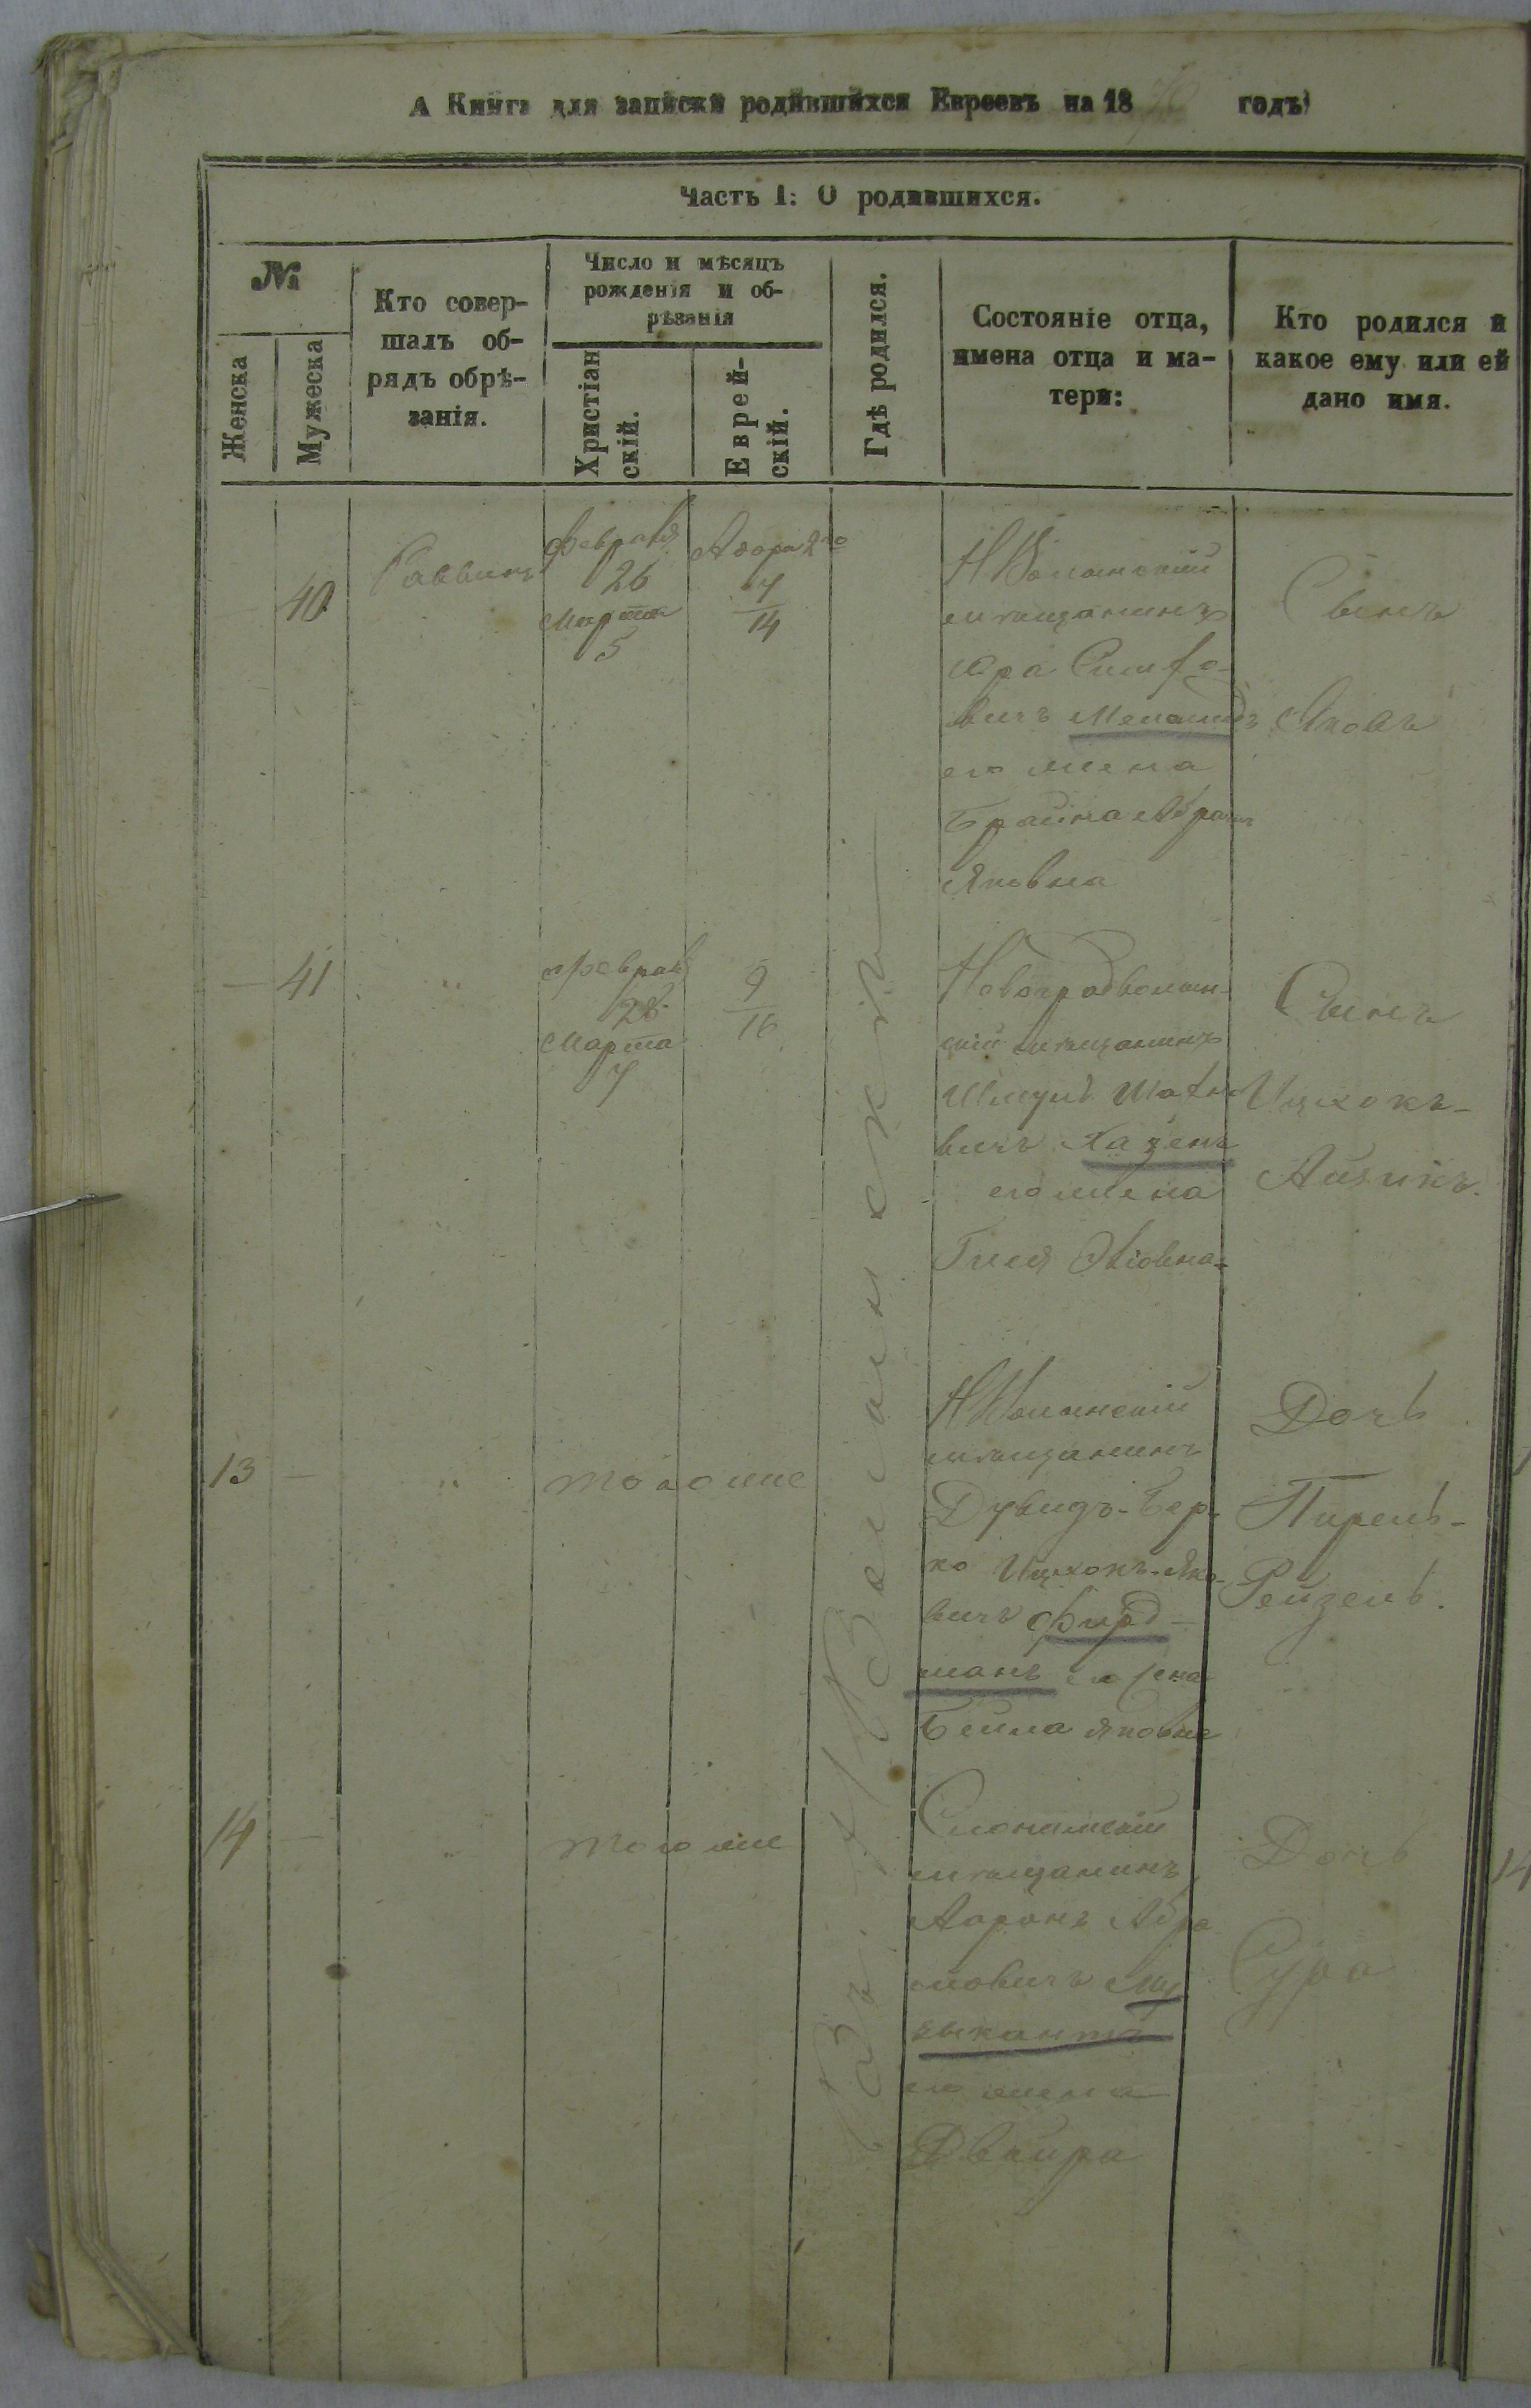 А Книга для записки родившихся Евреевъ на 18 годъ
Часть I: О родившихся.
№
Женска
Мужеска
Кто совер-
шалъ об-
рядъ обрѣ-
занія.
Число и мѣсяцъ
рожденія и об-
рѣзанія
Христіан
скій.
Еврей-
скій.
Гдѣ родился.
Состояніе отца,
имена отца и ма-
тери:
Кто родился и
какое ему или ей
дано имя.
40
Раввинъ
Февраля
26
Марта
5
Адара 2го
7
14
НВолынскій
мѣщанинъ
его жена
Брайна Абрам
Яковна
Сынъ
Яковъ
— 41 "
Феврал
28
Марта
7
9
16
Новоградволын-
скій мѣщанинъ
Шмуль
вичъ Хазенъ
его жена
Сынъ
Ицхокъ-
Айзикъ.
13 — "
тогоже
НВолынскій
мѣщанинъ
Дувидъ-Бер-
ко Ицхокъ-Яко-
вичъ Фирд-
манъ его жена
Бейла Яковна
Дочь
Перель-
Рейзель.
14 — "
тогоже
Слонимскій
мѣщанинъ
Ааронъ Абра
мовичъ Му
зыкантъ
его жена
Двойра
Дочь
Сура
въ НВолынскѣ
14